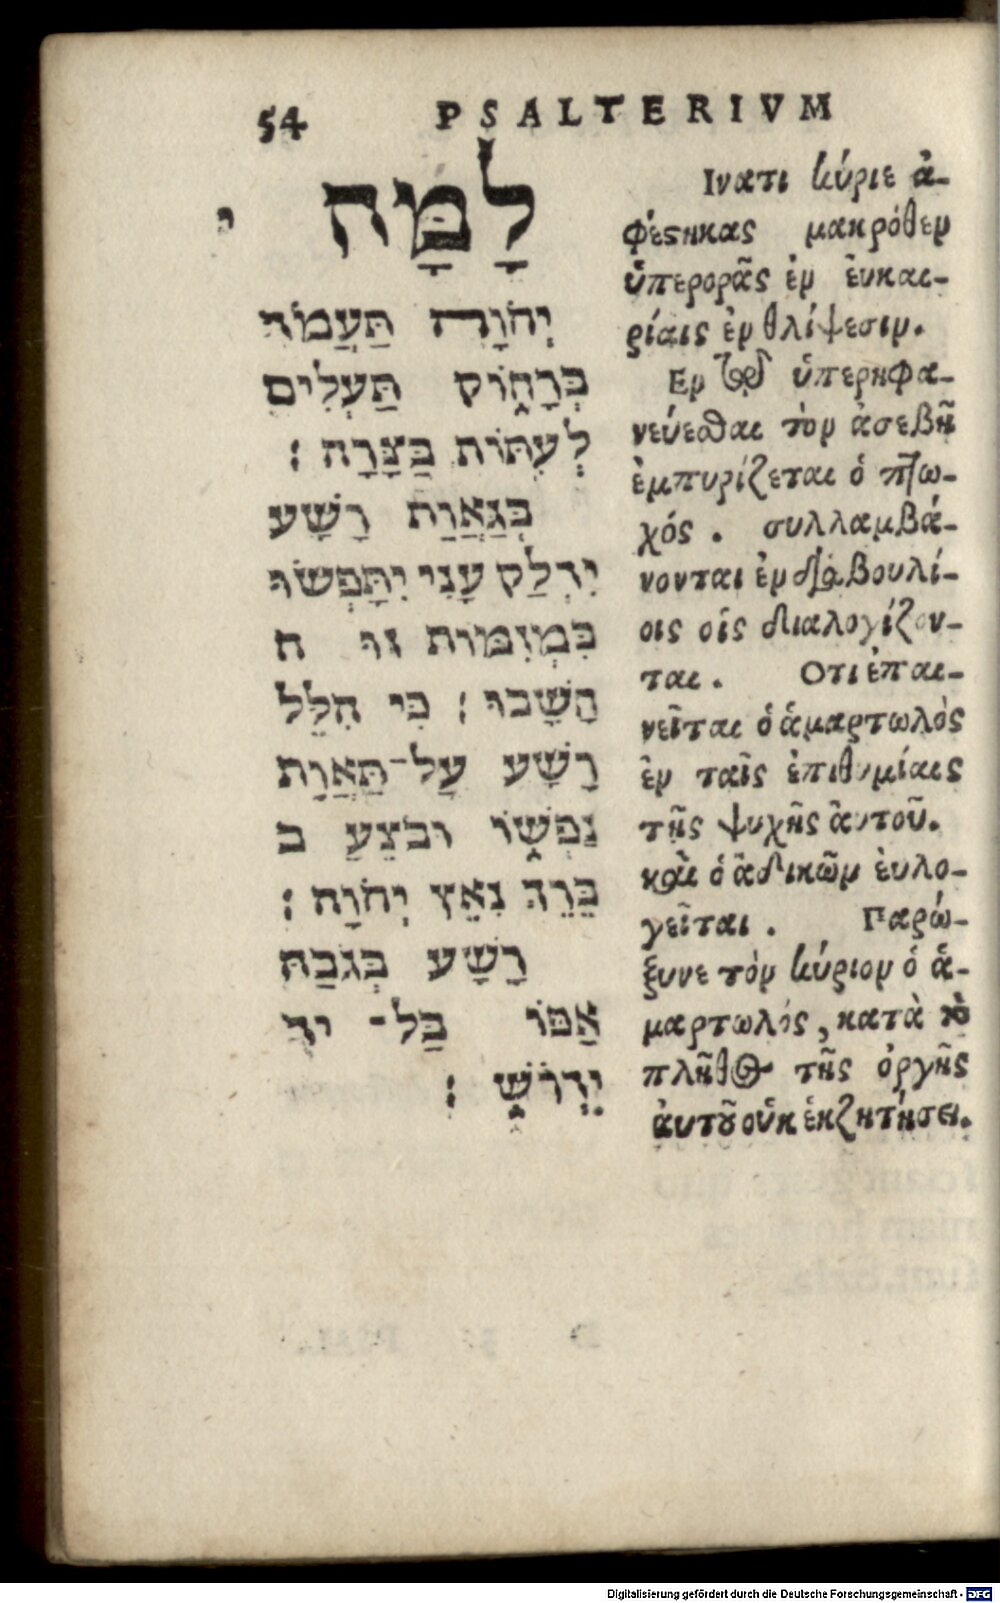 54 PSALTERIVM
לָמָּה י
יְהֹוָה תַּעֲמֹד
בְּרָח֑וֹק תַּעְלִים
לְעִתּ֥וֹת בַּצָּרָה׃
בְּגַאֲוַת רָשָׁע
יִדְלַק עָנִי יִתָּפְשׂוּ
בִּמְזִמּוֹת זוּ ח
חָשָׁבוּ׃ כִּי הִלֵּל
רָשָׁע עַל־תַּאֲוַת
נַפְשׁ֑וֹ וּבֹצֵעַ ב
בֵּרֵךְ נִאֵץ יְהֹוָה׃
רָשָׁע כְּגֹבַהּ
אַפּוֹ בַּל־ יד
יִדְרֹ֑שׁ׃
Ινατι κύριε ἀ-
φέϛηκας μακρόθεν
ὑπερορᾶς ἐν ἐυκαι-
ρίαις ἐν θλίψεσιν.
Εν τῷ ὑπερηφα-
νεύεσθαι τὸν ἀσεβῆ
ἐμπυρίζεται ὁ πτω-
χός. συλλαμβά-
νονται ἐν διαβουλί-
οις οἷς διαλογίζον-
ται. Οτι ἐπαι-
νεῖται ὁ ἁμαρτωλὸς
ἐν ταῖς ἐπιθυμίαις
τῆς ψυχῆς ἀυτοῦ.
καὶ ὁ ἀδικῶν ἐυλο-
γεῖται. Παρώ-
ξυνε τὸν κύριον ὁ ἁ-
μαρτωλός, κατὰ τὸ
πλῆθος τῆς ὀργῆς
ἀυτȣ͂ οὐκ ἐκζητήσει.
Digitalisierung gefördert durch die Deutsche Forschungsgemeinschaft - DFG